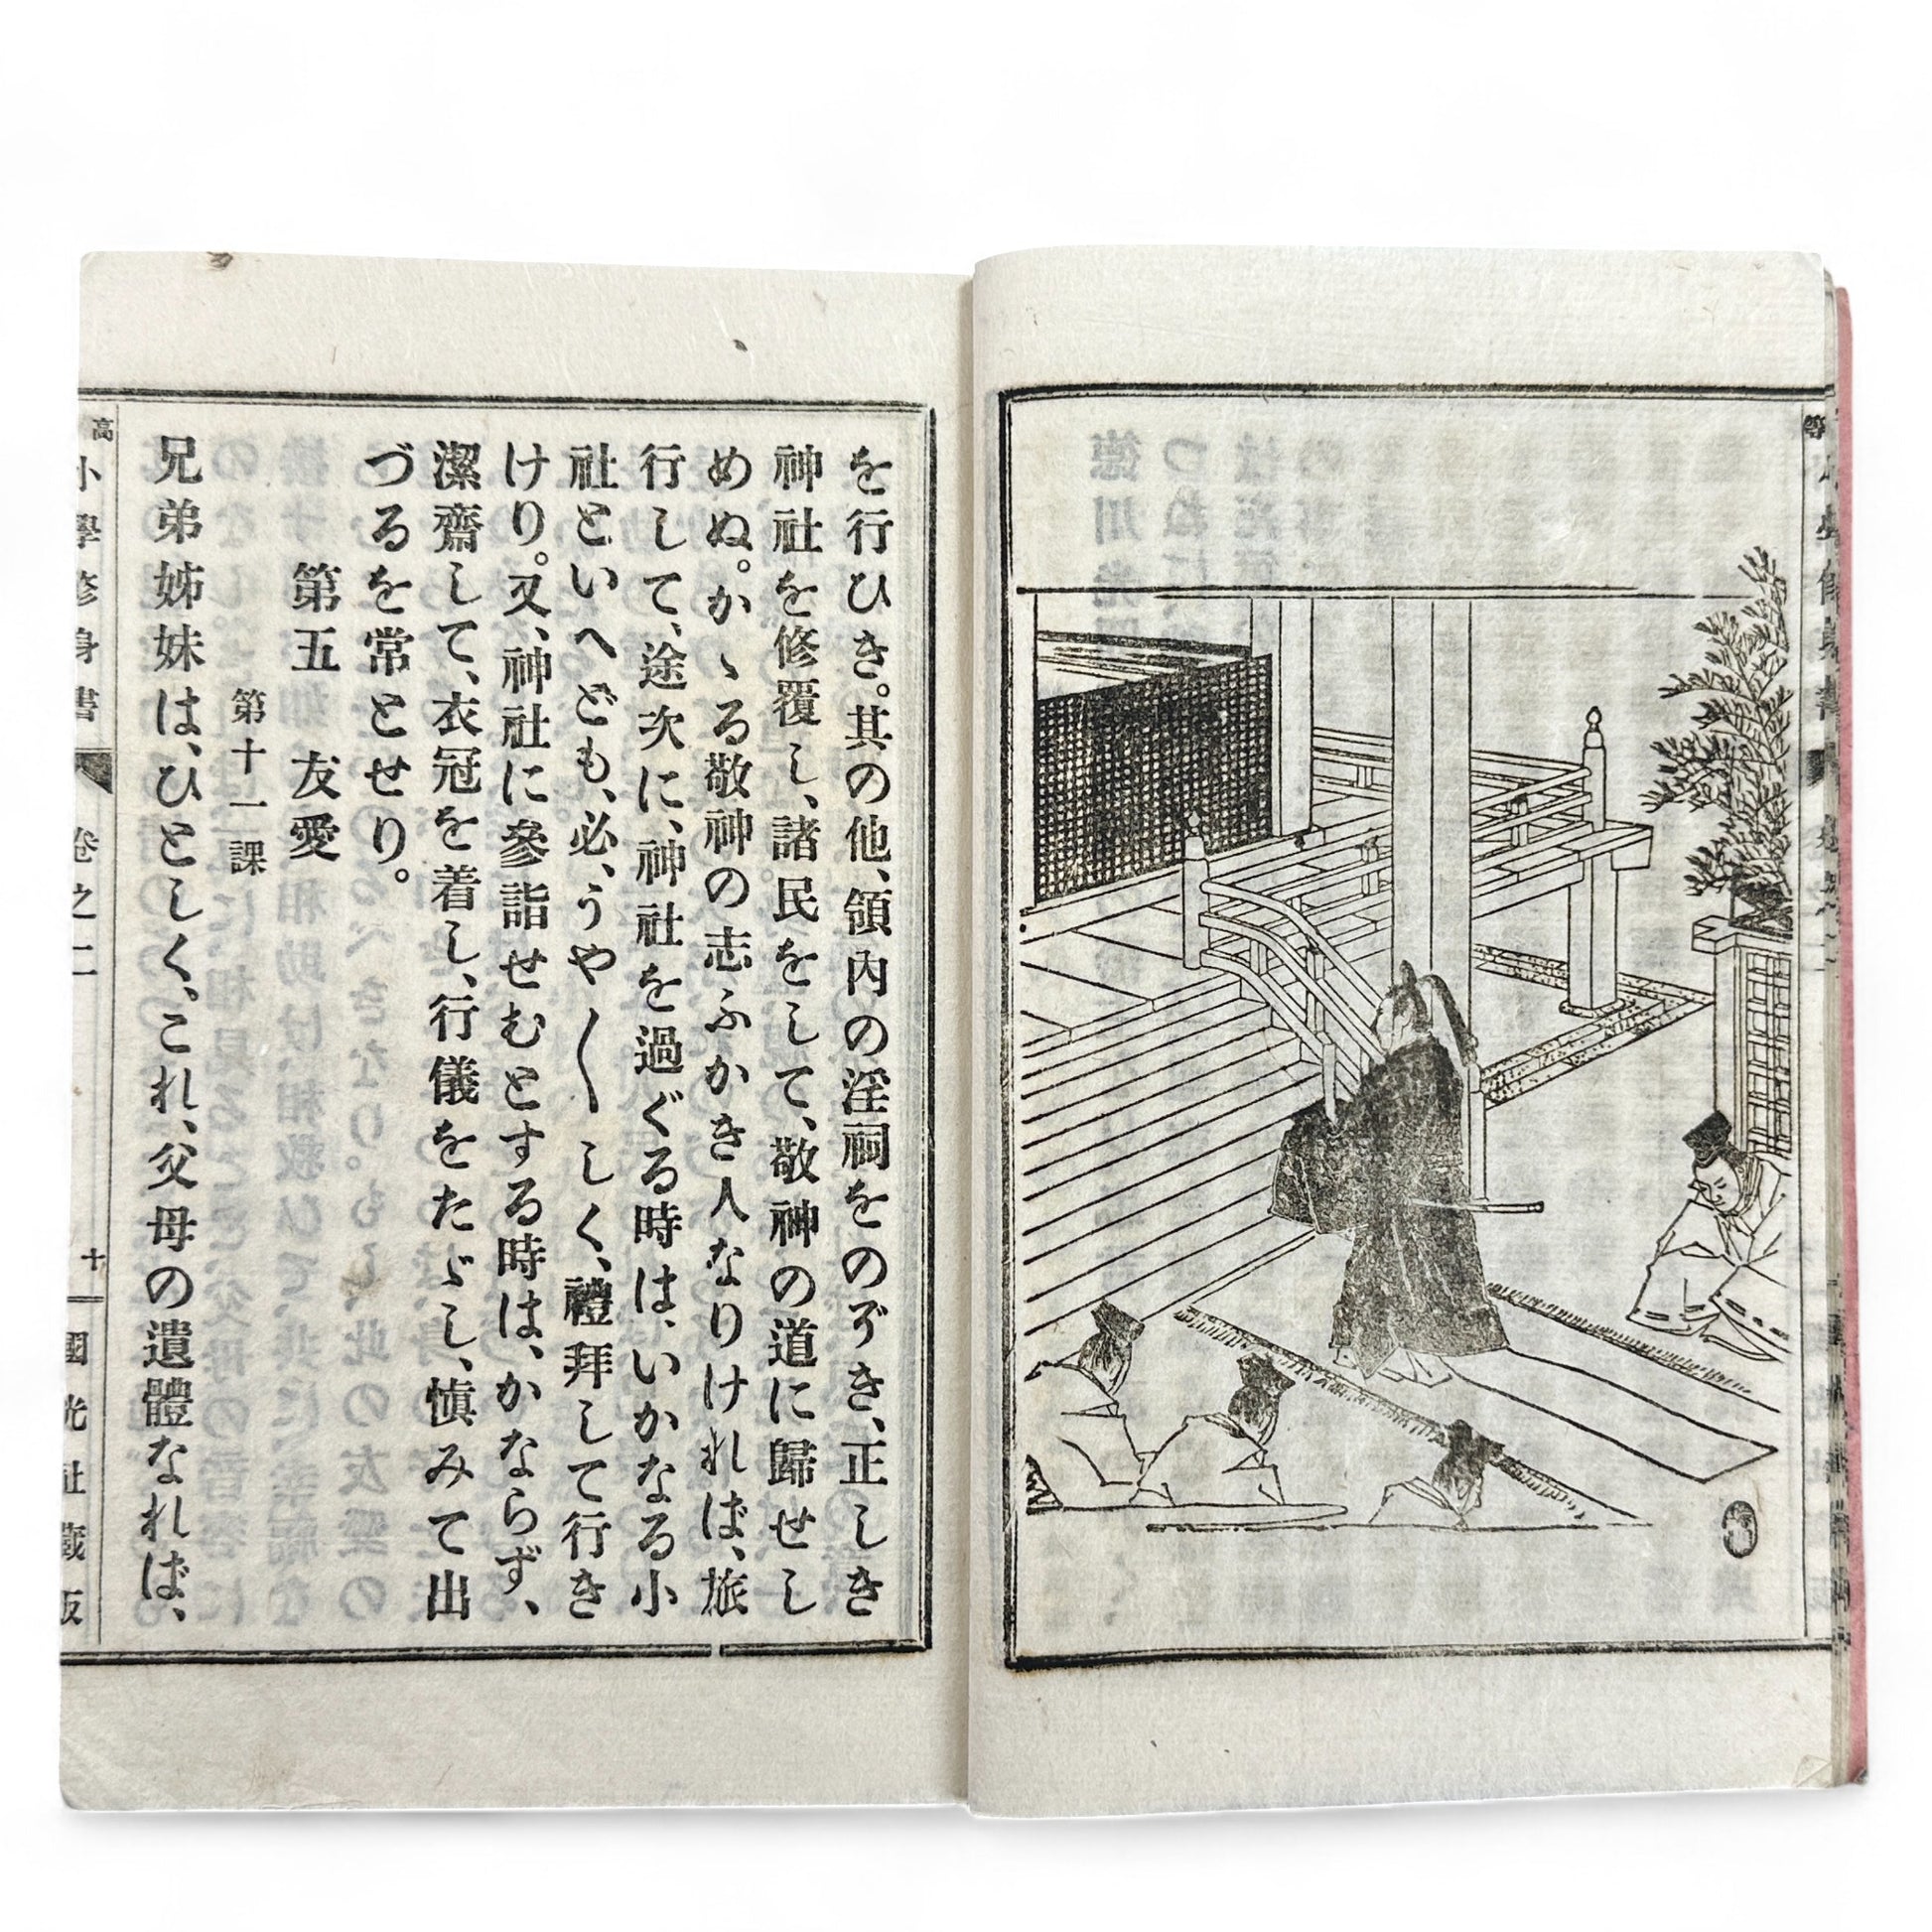 を行ひき。其の他、領內の淫祠をのぞき、正しき
神社を修覆し、諸民をして、敬神の道に歸せし
めぬ。かゝる敬神の志ふかき人なりければ、旅
行して、途次に、神社を過ぐる時は、いかなる小
社といへども、必、うや〳〵しく、禮拜して行き
けり。又、神社に參詣せむとする時は、かならず、
潔齋して、衣冠を着し、行儀をたゞし、愼みて出
づるを常とせり。
第五　友愛
第十一課
兄弟姊妹は、ひとしく、これ、父母の遺體なれば、
高
小學修身書
卷之二
十
國光社藏版